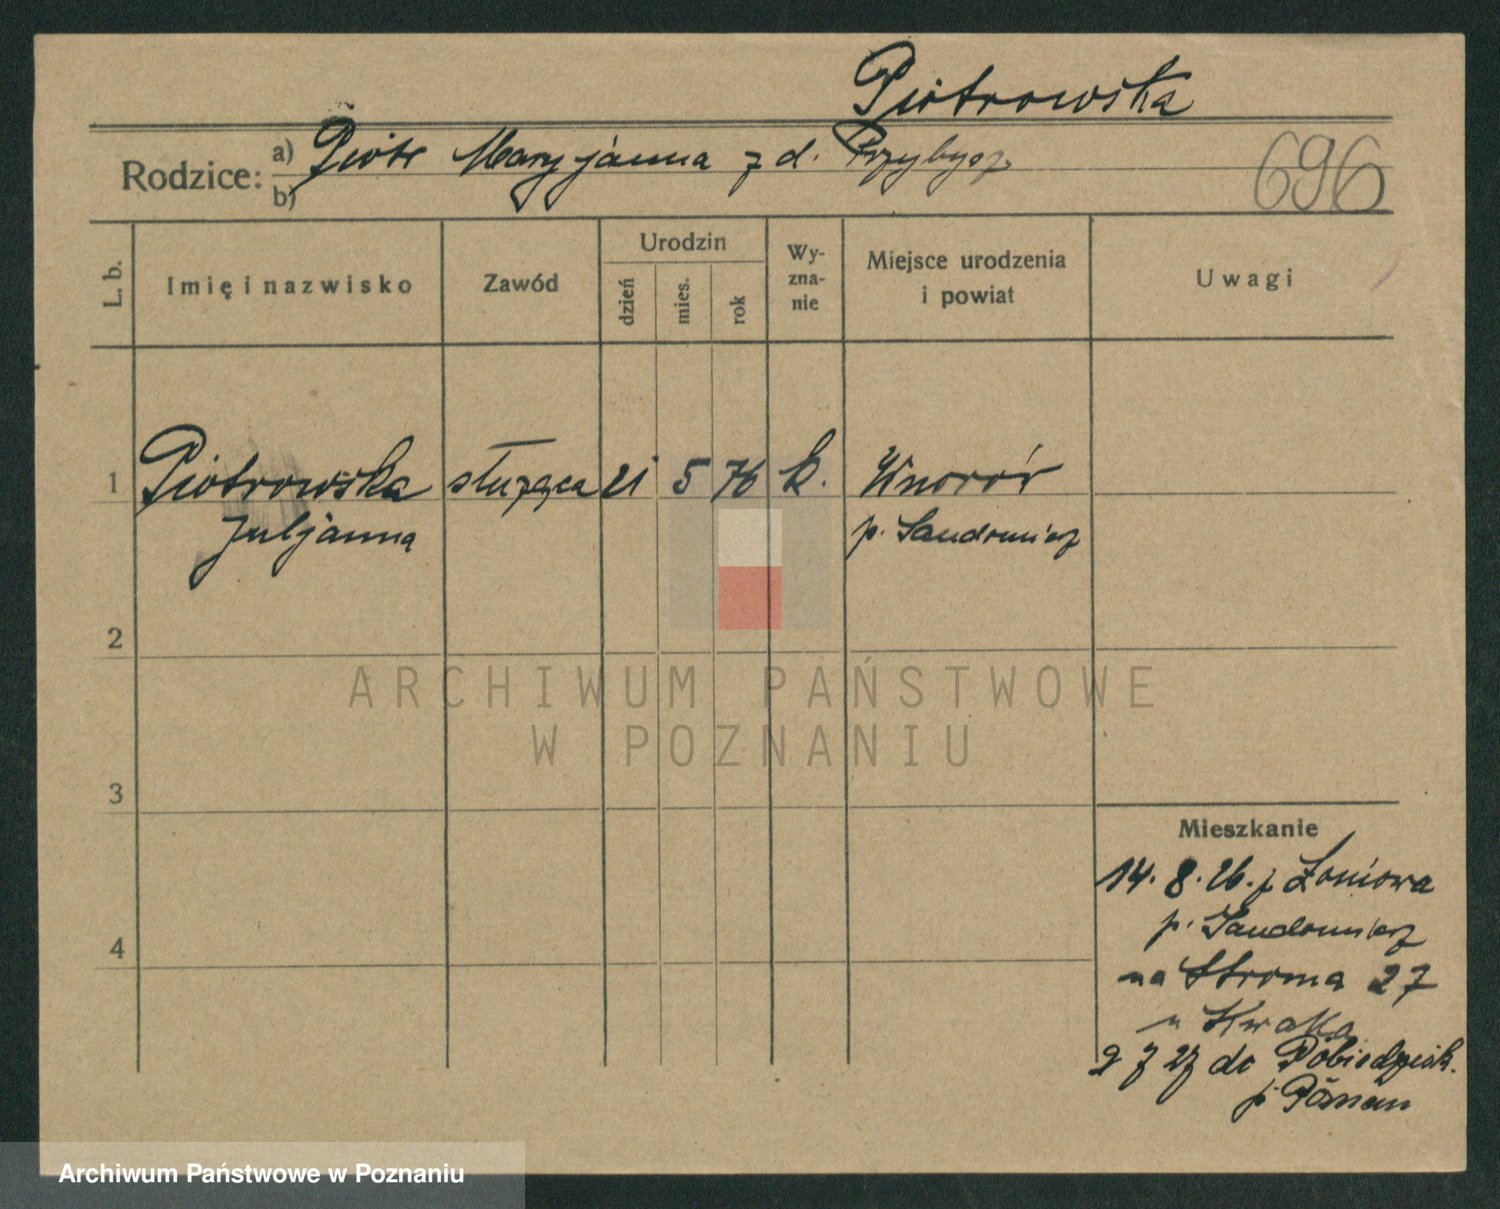 Piotrowska
Rodzice: a) Piotr Maryjanna z d. Przybysz
b)
696
L. b. Imię i nazwisko Zawód Urodzin dzień mies. rok Wy-zna-nie Miejsce urodzenia i powiat Uwagi
1 Piotrowska służąca 21 5 76 k. Wnorów
Juljanna p. Sandomierz
2
ARCHIWUM PAŃSTWOWE
W POZNANIU
3
Mieszkanie
14.8.26. z Łoniowa
p. Sandomierz
4
na Stroma 27
u Kwaka
9 7 27 do Pobiedzisk.
p. Poznań
Archiwum Państwowe w Poznaniu